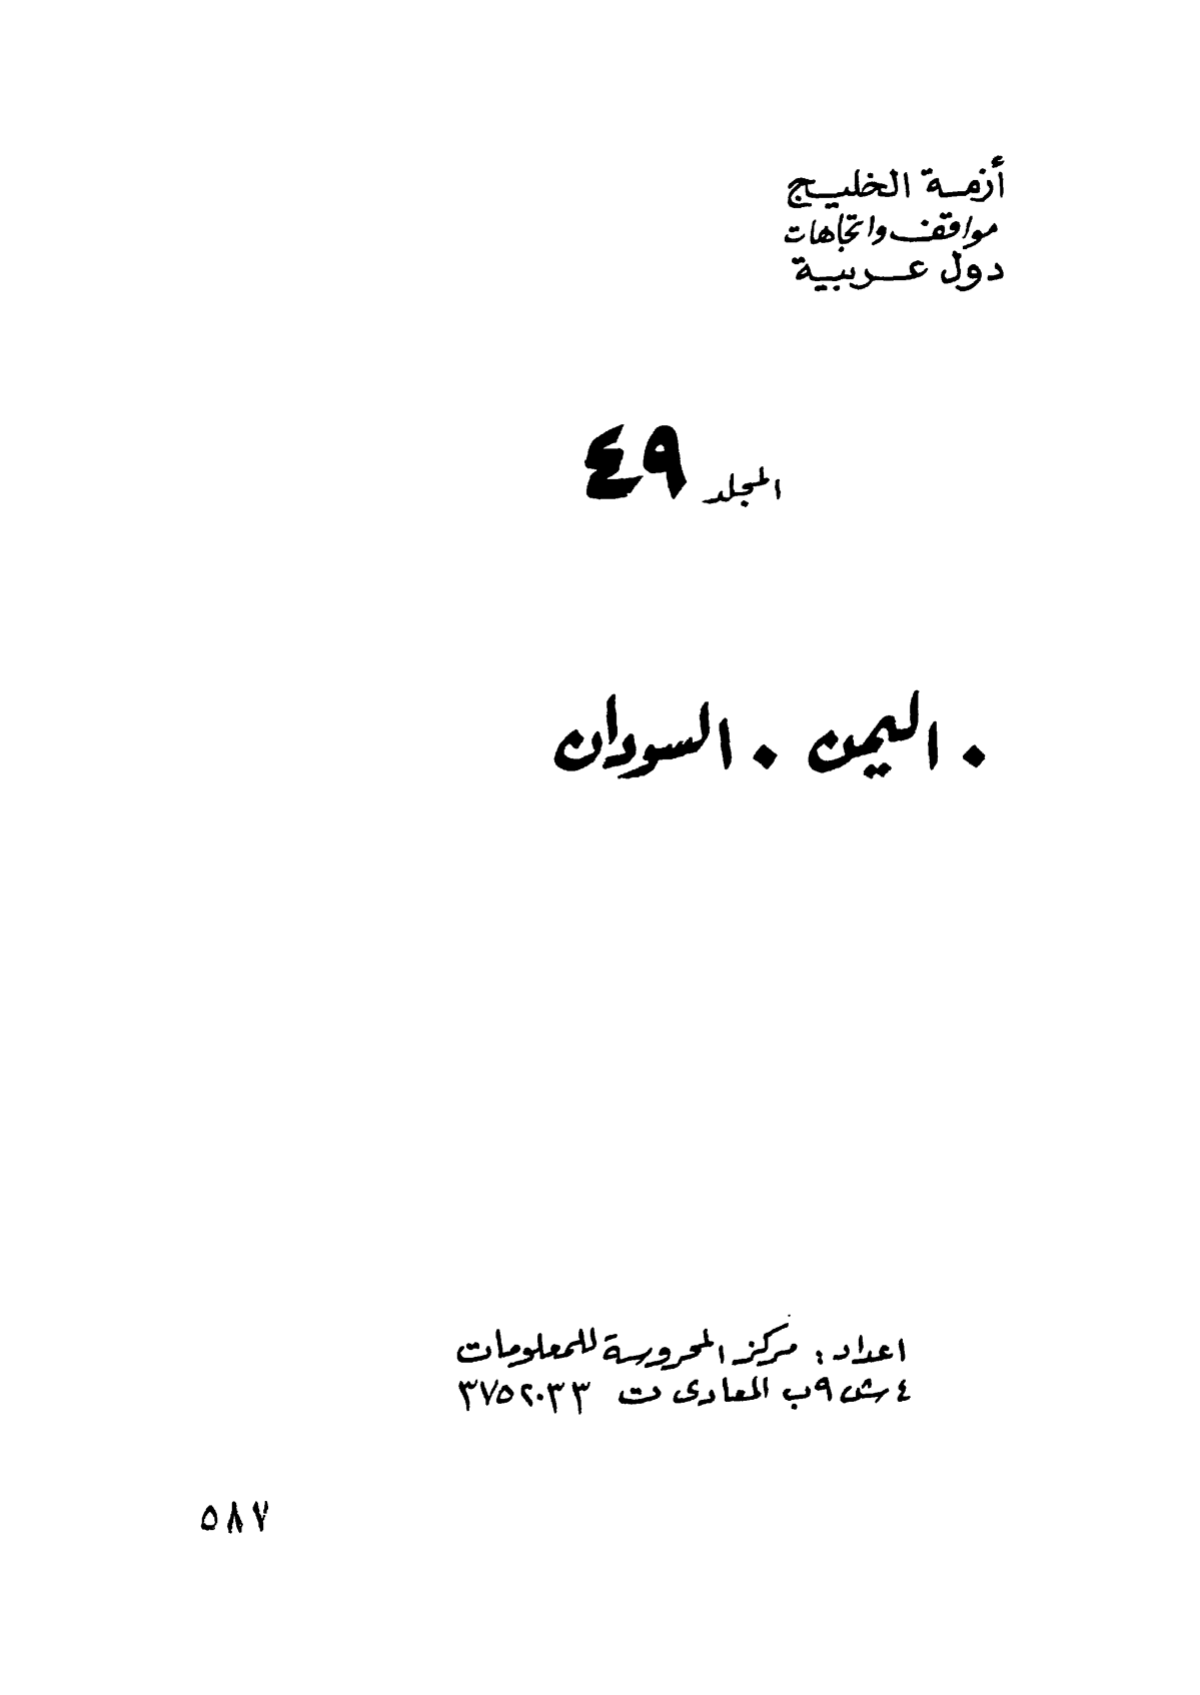 أزمة الخليج
مواقف واتجاهات
دول عربية
المجلد ٤٩
٠ اليمن ٠ السودان
اعداد : مركز المحروسة للمعلومات
٤ ش ٩ب المعادى ت ٣٧٥٢٠٣٣
٥٨٧